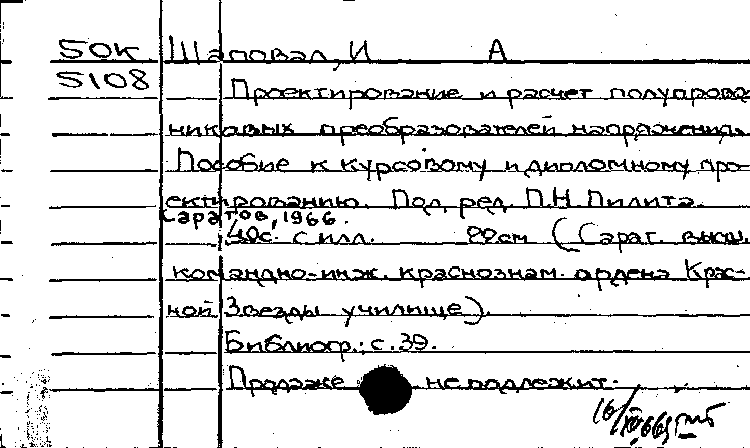 50К Шаповал, И А
5108 Проектирование и расчет полупровод
никовых преобразователей напряжения.
Пособие к курсовому и дипломному про-
ектированию. Под ред. П.Н. Пилита.
Саратов, 1966.
40с. с илл. 22см (Сарат. высш.
командно-инж. краснознам. ордена Крас-
ной Звезды училище).
Библиогр.: с. 39.
Продаже не подлежит.